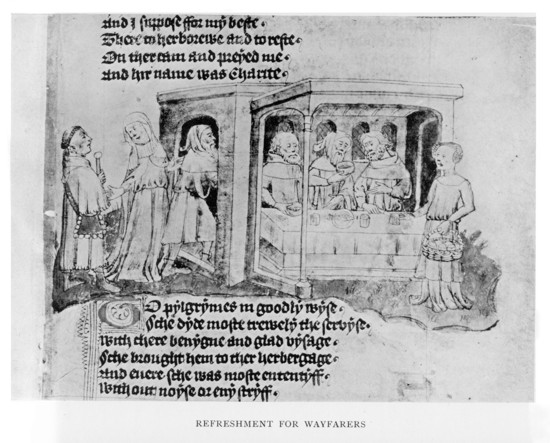 And I suppose ffor my beste
There to herborewe and to reste
On ther cam and preyed me
And hir name was Charite
To pylgrymes in goodly wyse
Sche dyde moste trewely the servyse
With chere benygne and glad vysage
Sche brought hem to ther herbergage
And evere sche was moste ententyff
With out noyse or eny stryff
REFRESHMENT FOR WAYFARERS